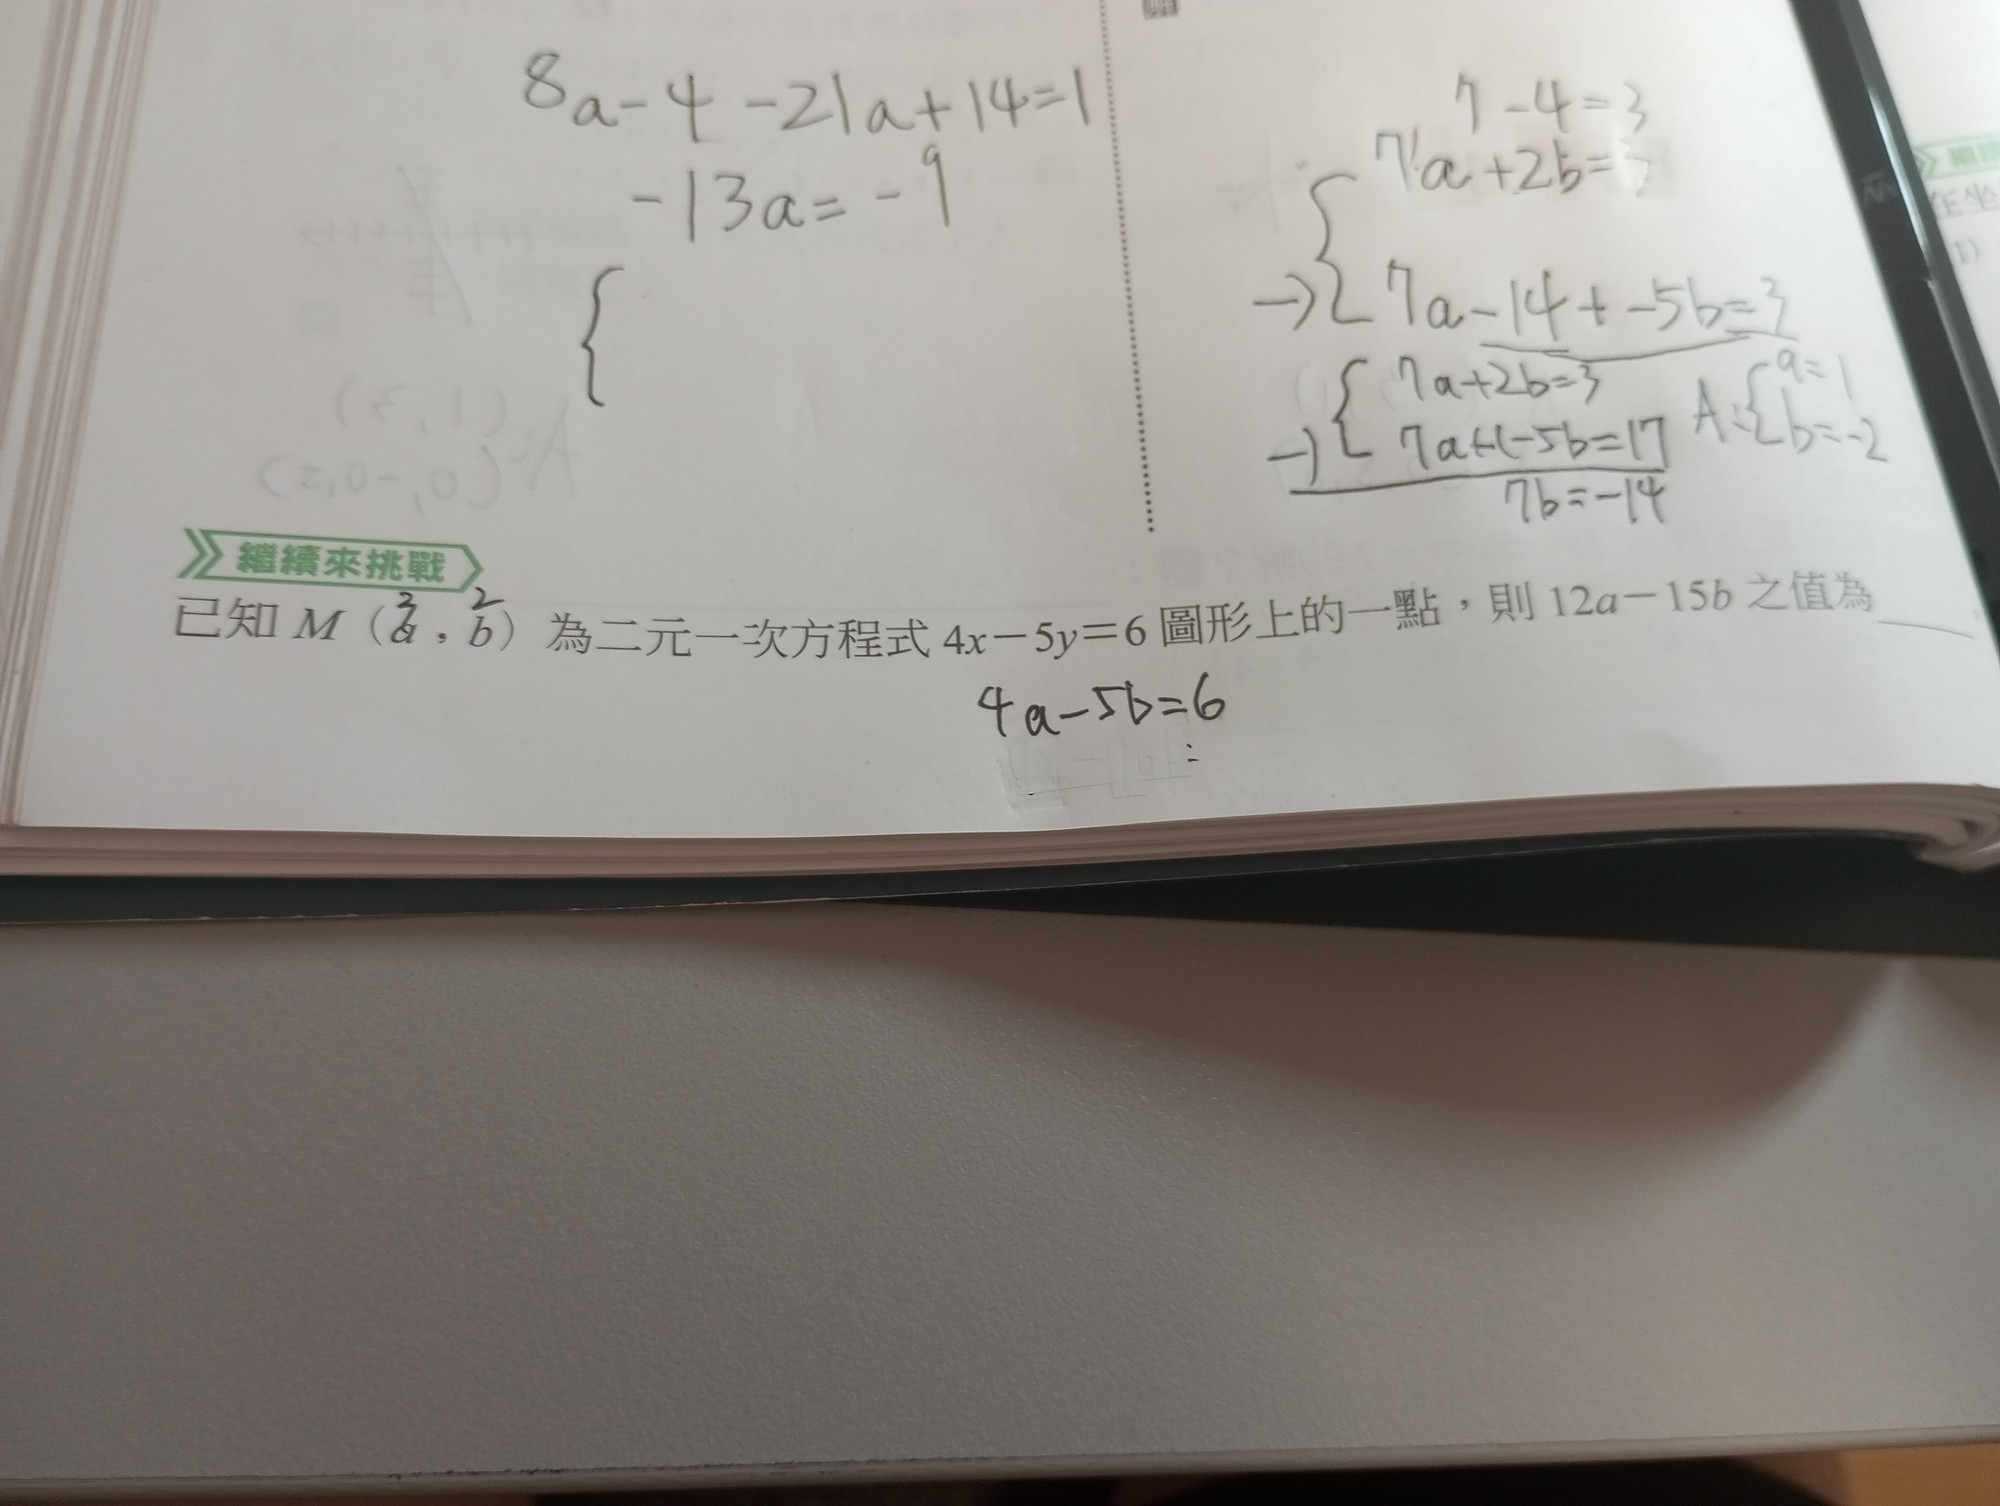 8a-4-21a+14=1
-13a=-9
{
7-4=3
7a+2b=3
→ 7a-14+-5b=3
7a+2b=3
→ 7a+(-5b=17
7b=-14
A: a=1
b=-2
繼續來挑戰
3 2
已知 M（a，b）為二元一次方程式 4x－5y＝6 圖形上的一點，則 12a－15b 之值為
4a-5b=6